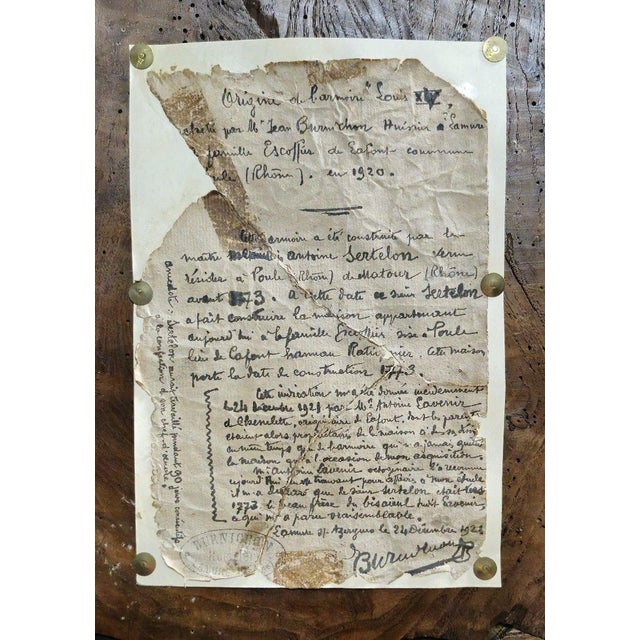 Origine de l'armoire Louis XV,
achetée par Mr Jean Burnichon Huissier à Lamure
famille Escoffier de Lafont commune
Poule (Rhône). en 1920.
Cette armoire a été construite par le
maître Antoine Sertelon venu
résider à Poule (Rhône) de Matour (Rhône)
avant 1773. A cette date ce sieur Sertelon
a fait construire la maison appartenant
aujourd'hui à la famille Escoffier sise à Poule
lieu de Lafont hameau Cette maison
porte la date de construction 1773.
Cette indication m'a été donnée incidemment
le 24 décembre 1921 par Mr Antoine Lavenir
de Chenelette, originaire de Lafont. dont les parents
étaient alors propriétaires de la maison
même temps que de l'armoire qui n'a jamais quitté
la maison qu'à l'occasion de mon acquisition
Mr Antoine Lavenir octogénaire
aujourd'hui en se trouvant pour affaire à mon étude
il m'a déclaré que le sieur Sertelon était
1773 le beau frère du bisaïeul Lavenir,
ce qui m'a paru vraisemblable.
Lamure s/ Azergues le 24 Décembre 1921
Burnichon
anecdote : Sertelon aurait travaillé pendant 90 jours consécutifs
à la confection de son chef-d'œuvre.
BURNICHON